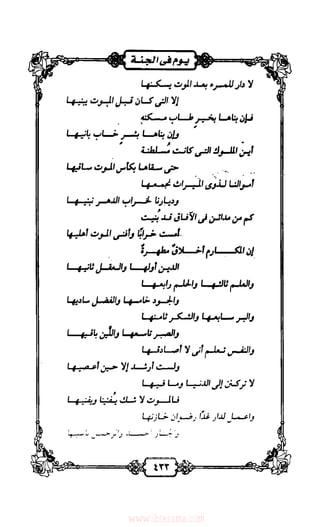 يوم في الجنة
لا دار للمرء بعد الموت يسكنها
إلا التي كان قبل الموت يبنيها
فإن بناها بخير طاب مسكنه
وإن بناها بشر خاب بانيها
أين الملوك التي كانت مُسلطنة
حتى سقاها بكأس الموت ساقيها
أموالنا لذوي الميراث نجمعها
وديارنا لخراب الدهر نبنيها
كم من مدائن في الآفاق قد بنيت
أمست خرابًا وأفنى الموت أهليها
إن المكارم أخلاق مطهرةٌ
الدين أولها والعقل ثانيها
والعلم ثالثها والحلم رابعها
والجود خامسها والفضل سادیها
والبر سابعها والشكر ثامنها
والصبر تاسعها واللين باقيها
والنفس تعلم أني لا أصادقها
ولست أرشد إلا حين أعصيها
لا تركنن إلى الدنيا وما فيها
فالموت لا شك يُفنينا ويفنيها
واعمل لدار غدًا رضوان خازنها
والجار أحمد والرحمن ناشيها
٤٢٣
www.ibtesama.com